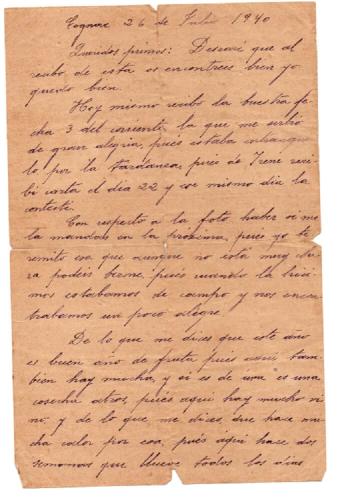 Cognac 26 de Julio 1940
Queridos primos: Desearé que al
recibo de esta os encontreis bien yo
quedo bien.
Hoy mismo recibo la buestra fe
cha 3 del corriente, la que me sirbio
de gran alegria, pues estaba intranqui
lo por la tardanza, pues de Irene reci
bi carta el dia 22 y ese mismo dia la
contesté.
Con respecto a la foto haber si me
la mandais en la próxima, pues yo te
remito esa que aunque no está muy cla
ra podeis berme, pues cuando la hici
mos estabamos de campo y nos encon
trabamos un poco alegre.
De lo que me dices que este año
es buen año de fruta pues aqui tam
bien hay mucha, y si es de uva es una
cosecha atros, pues aqui hay mucho vi
no, y de lo que me dices que hace mu
cha calor por esa, pues aqui hace dos
semanas que llueve todos los dias